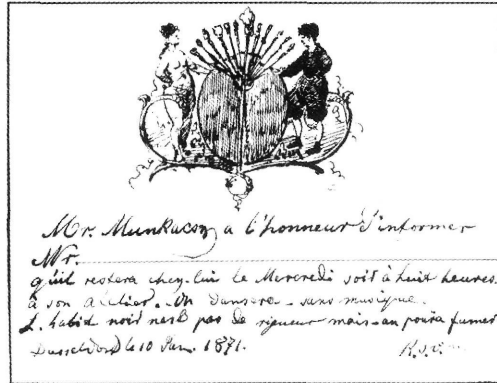 Mr. Munkacsy a l'honneur d'informer
Mr.
qu'il restera chez lui le Mercredi soir à huit heures.
à son atelier. On dansera - sans musique.
L'habit noir n'est pas de rigueur mais - on poura fumer
Dusseldorf le 10 1871.